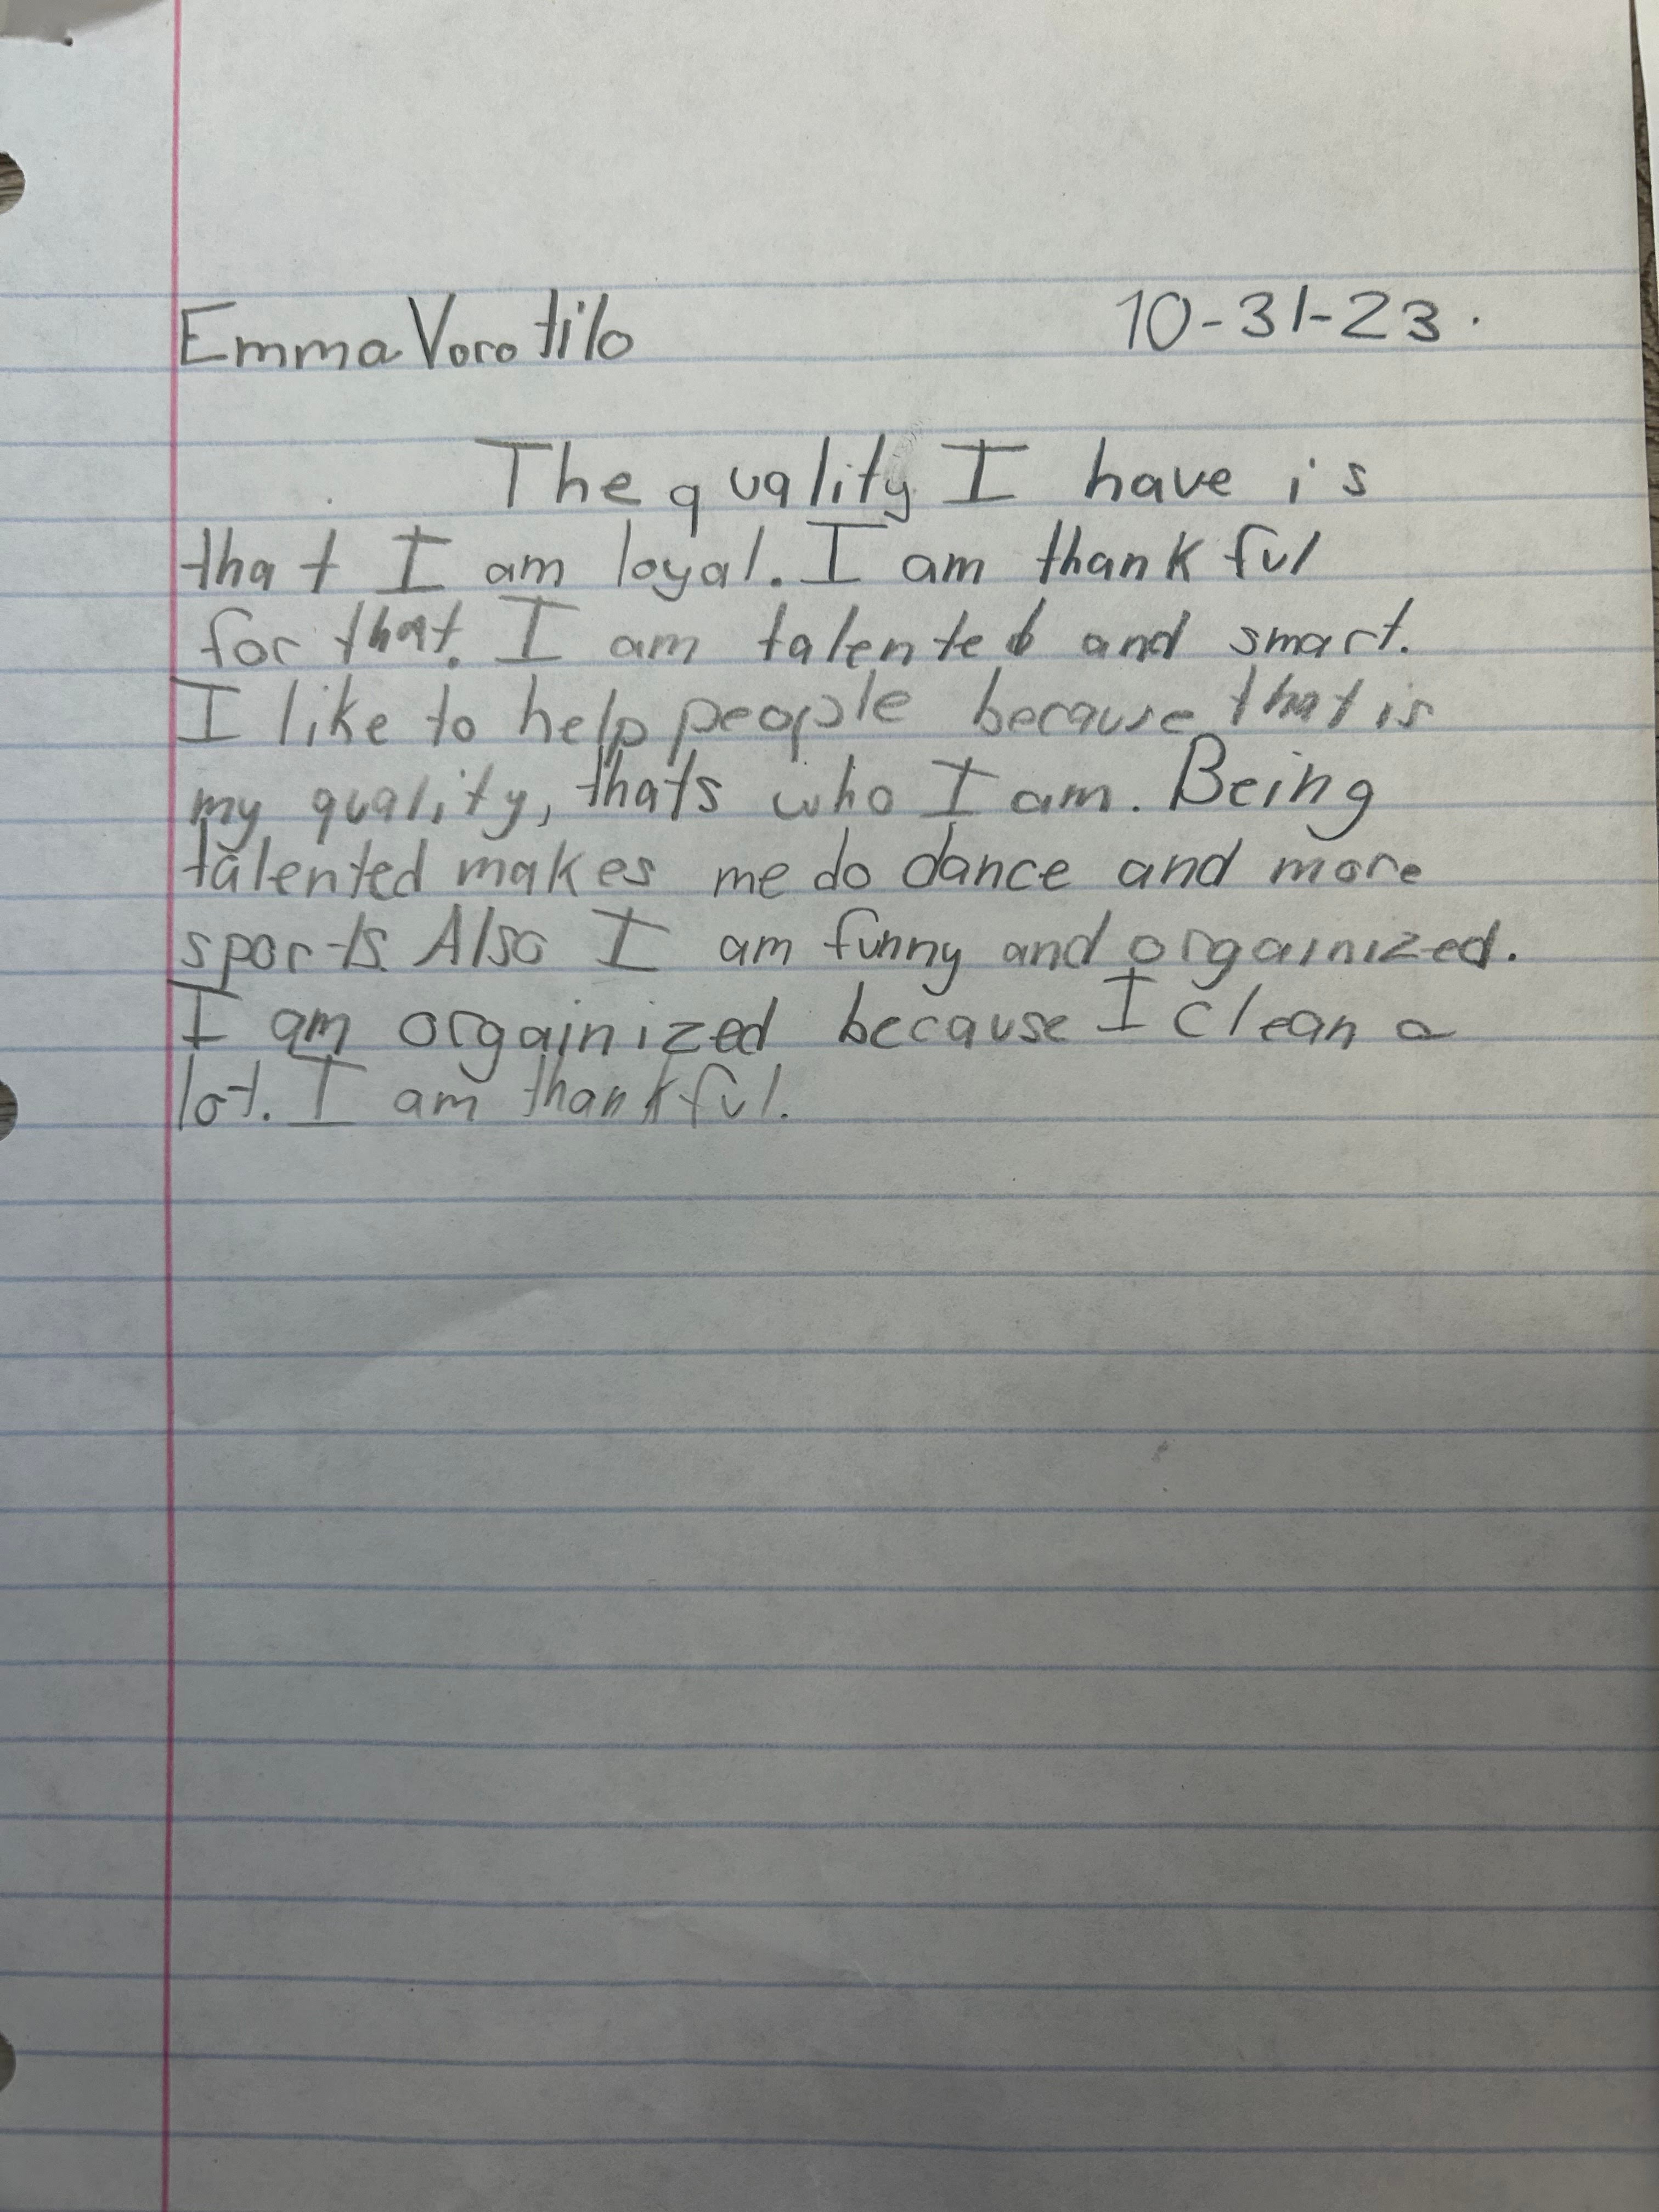 Emma Vorotilo 10-31-23.
The quality I have is
that I am loyal. I am thankful
for that. I am talented and smart.
I like to help people because that is
my quality, thats who I am. Being
talented makes me do dance and more
sports. Also I am funny and orgainized.
I am orgainized because I clean a
lot. I am thankful.